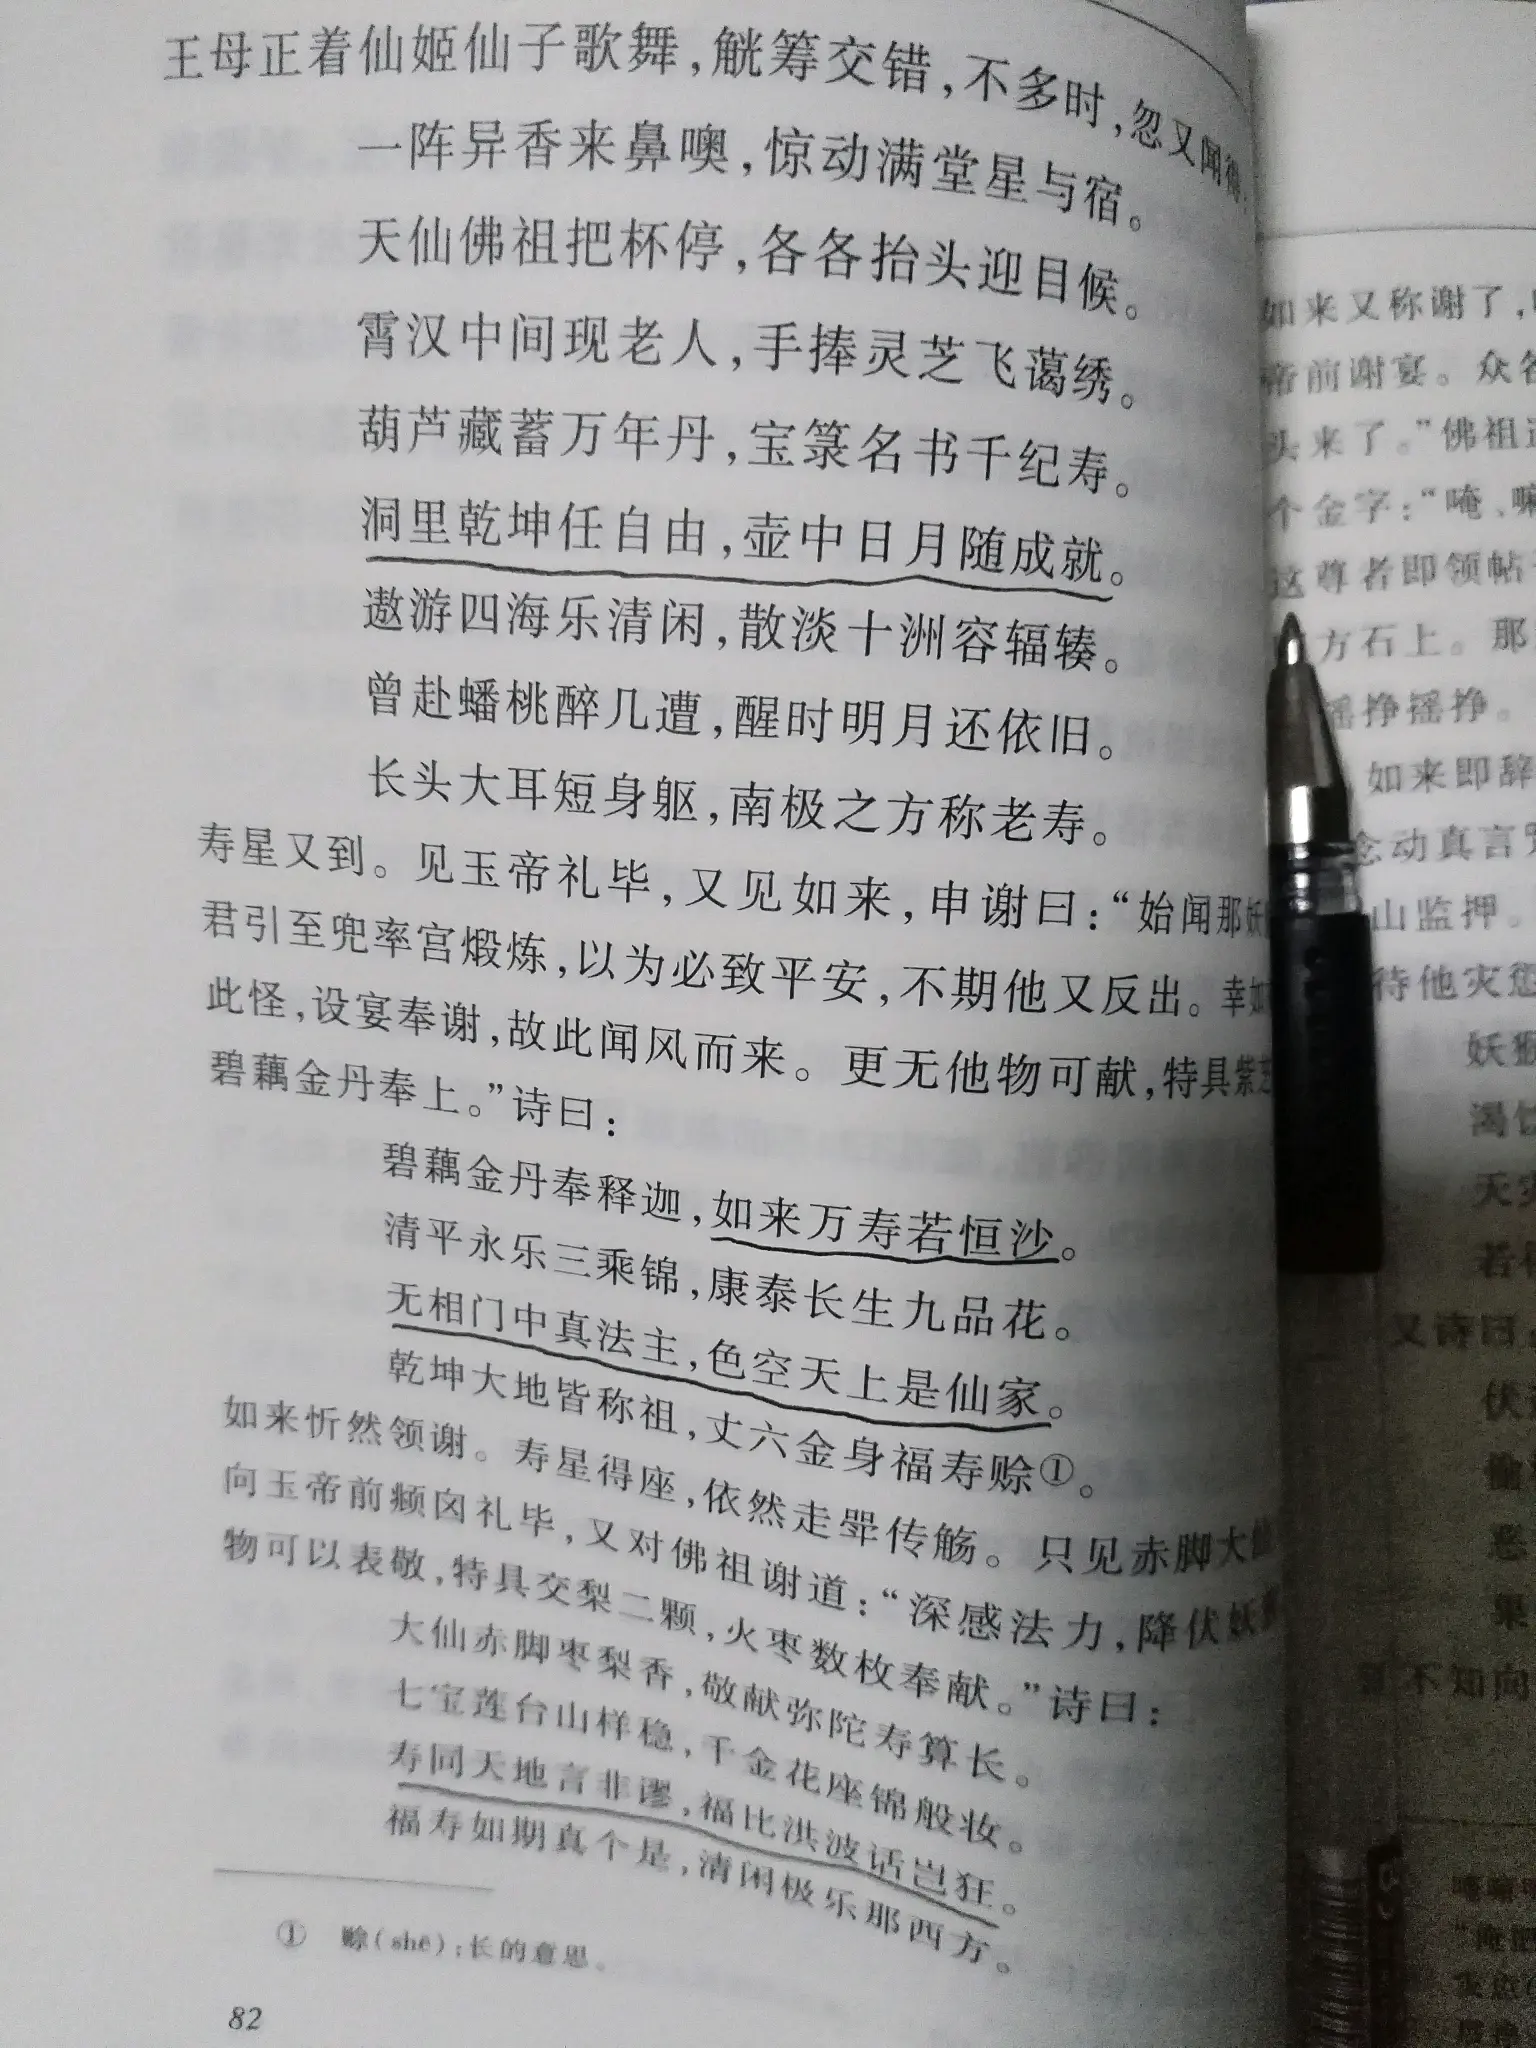 王母正着仙姬仙子歌舞，觥筹交错，不多时，忽又闻得：
一阵异香来鼻噢，惊动满堂星与宿。
天仙佛祖把杯停，各各抬头迎目候。
霄汉中间现老人，手捧灵芝飞蔼绣。
葫芦藏蓄万年丹，宝箓名书千纪寿。
洞里乾坤任自由，壶中日月随成就。
遨游四海乐清闲，散淡十洲容辐辏。
曾赴蟠桃醉几遭，醒时明月还依旧。
长头大耳短身躯，南极之方称老寿。
寿星又到。见玉帝礼毕，又见如来，申谢曰：“始闻那妖
君引至兜率宫煅炼，以为必致平安，不期他又反出。幸如
此怪，设宴奉谢，故此闻风而来。更无他物可献，特具紫芝
碧藕金丹奉上。”诗曰：
碧藕金丹奉释迦，如来万寿若恒沙。
清平永乐三乘锦，康泰长生九品花。
无相门中真法主，色空天上是仙家。
乾坤大地皆称祖，丈六金身福寿赊①。
如来忻然领谢。寿星得座，依然走斝传觞。只见赤脚大仙
向玉帝前頫囟礼毕，又对佛祖谢道：“深感法力，降伏妖猴
物可以表敬，特具交梨二颗，火枣数枚奉献。”诗曰：
大仙赤脚枣梨香，敬献弥陀寿算长。
七宝莲台山样稳，千金花座锦般妆。
寿同天地言非谬，福比洪波话岂狂。
福寿如期真个是，清闲极乐那西方。
① 赊(shē)：长的意思。
82
如来又称谢了，
帝前谢宴。众各
头来了。”佛祖道
个金字：“唵、嘛
这尊者即领帖
方石上。那
摇挣摇挣。
如来即辞
念动真言咒
山监押。
待他灾愆
妖猴
渴饮
天灾
若得
又诗曰
伏
果
不知向